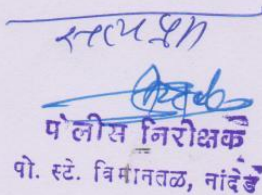 सत्यप्रत
पोलीस निरीक्षक
पो. स्टे. विमानतळ, नांदेड